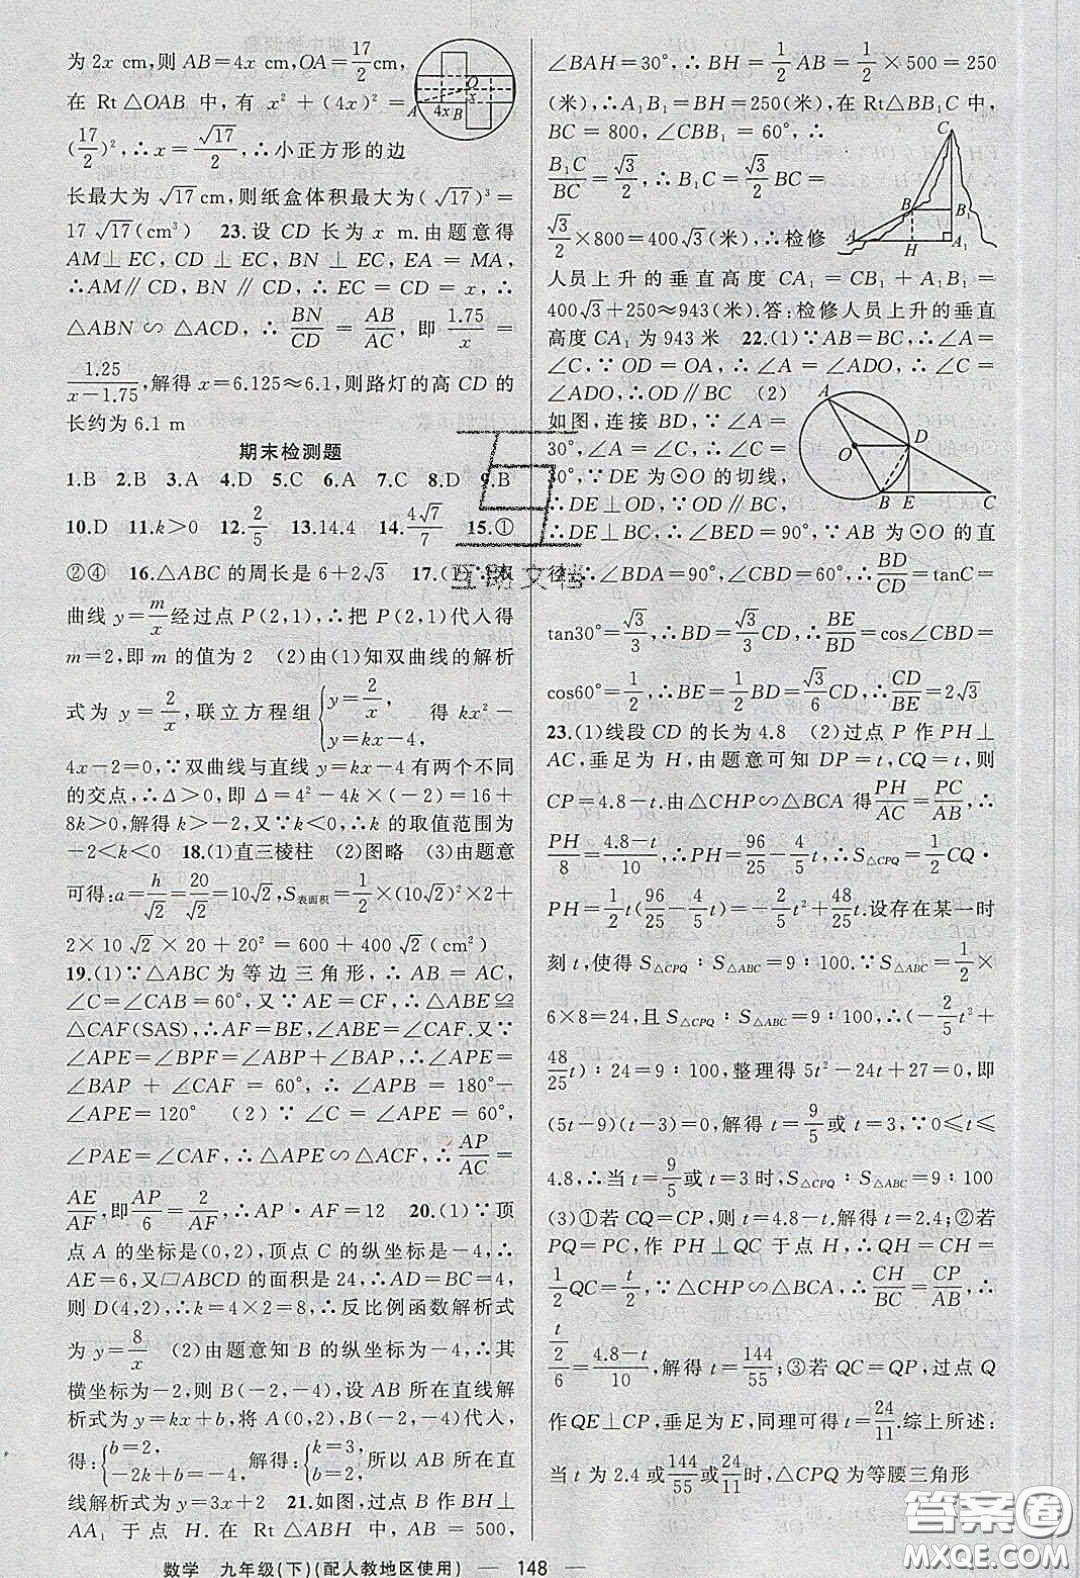 为2x cm,则AB=4x cm,OA=17/2 cm,
在 Rt△OAB 中,有 x²+(4x)²=
(17/2)²,∴x=√17/2,∴小正方形的边
长最大为√17cm,则纸盒体积最大为(√17)³=
17√17(cm³) 23.设 CD 长为 x m.由题意得
AM⊥EC,CD⊥EC,BN⊥EC,EA=MA,
∴AM∥CD,BN∥CD,∴EC=CD=x,
∴△ABN∽△ACD,∴BN/CD=AB/AC,即1.75/x=
1.25/(x-1.75),解得 x=6.125≈6.1,则路灯的高 CD 的
长约为 6.1 m
A 4x B O x
期末检测题
1.B 2.B 3.A 4.D 5.C 6.A 7.C 8.D 9.B
10.D 11.k>0 12.2/5 13.14.4 14.4√7/7 15.①
②④ 16.△ABC 的周长是 6+2√3 17.(1)∵双
曲线 y=m/x经过点 P(2,1),∴把 P(2,1)代入得
m=2,即 m 的值为 2 (2)由(1)知双曲线的解析
式为 y=2/x,联立方程组{y=2/x, y=kx-4, 得 kx²-
4x-2=0,∵双曲线与直线 y=kx-4 有两个不同
的交点,∴Δ>0,即 Δ=4²-4k×(-2)=16+
8k>0,解得 k>-2,又∵k<0,∴k 的取值范围为
-2<k<0 18.(1)直三棱柱 (2)图略 (3)由题意
可得:a=h/√2=20/√2=10√2,S表面积=1/2×(10√2)²×2+
2×10√2×20+20²=600+400√2(cm²)
19.(1)∵△ABC 为等边三角形,∴AB=AC,
∠C=∠CAB=60°,又∵AE=CF,∴△ABE≌
△CAF(SAS),∴AF=BE,∠ABE=∠CAF.又∵
∠APE=∠BPF=∠ABP+∠BAP,∴∠APE=
∠BAP+∠CAF=60°,∴∠APB=180°-
∠APE=120° (2)∵∠C=∠APE=60°,
∠PAE=∠CAF,∴△APE∽△ACF,∴AP/AC=
AE/AF,即AP/6=2/AF,∴AP·AF=12 20.(1)∵顶
点 A 的坐标是(0,2),顶点 C 的纵坐标为-4,∴
AE=6,又▱ABCD 的面积是 24,∴AD=BC=4,
则 D(4,2),∴k=4×2=8,∴反比例函数解析式
为 y=8/x (2)由题意知 B 的纵坐标为-4,∴其
横坐标为-2,则 B(-2,-4),设 AB 所在直线解
析式为 y=kx+b,将 A(0,2),B(-2,-4)代入,
得:{b=2, -2k+b=-4, 解得:{k=3, b=2, 所以 AB 所在直
线解析式为 y=3x+2 21.如图,过点 B 作 BH⊥
AA₁ 于点 H.在 Rt△ABH 中,AB=500,
∠BAH=30°,∴BH=1/2AB=1/2×500=250
(米),∴A₁B₁=BH=250(米),在 Rt△BB₁C 中,
BC=800,∠CBB₁=60°,∴
B₁C/BC=√3/2,∴B₁C=√3/2BC=
√3/2×800=400√3(米),∴检修
人员上升的垂直高度 CA₁=CB₁+A₁B₁=
400√3+250≈943(米).答:检修人员上升的垂直
高度 CA₁ 为 943 米 22.(1)∵AB=BC,∴∠A=
∠C.∵OD=OA,∴∠A=∠ADO,∴∠C=
∠ADO,∴OD∥BC (2)
如图,连接 BD,∵∠A=
30°,∠A=∠C,∴∠C=
30°,∵DE 为⊙O 的切线,
∴DE⊥OD,∵OD∥BC,
∴DE⊥BC,∴∠BED=90°,∵AB 为⊙O 的直
径,∴∠BDA=90°,∠CBD=60°,∴BD/CD=tanC=
tan30°=√3/3,∴BD=√3/3CD,∴BE/BD=cos∠CBD=
cos60°=1/2,∴BE=1/2BD=√3/6CD,∴CD/BE=2√3
C B B₁ A H A₁
A O D B E C
23.(1)线段 CD 的长为 4.8 (2)过点 P 作 PH⊥
AC,垂足为 H,由题意可知 DP=t,CQ=t,则
CP=4.8-t.由△CHP∽△BCA 得PH/AC=PC/AB,∴
PH/8=(4.8-t)/10,∴PH=96/25-4/5t,∴S△CPQ=1/2CQ·
PH=1/2t(96/25-4/5t)=-2/5t²+48/25t.设存在某一时
刻 t,使得 S△CPQ:S△ABC=9:100.∵S△ABC=1/2×
6×8=24,且 S△CPQ:S△ABC=9:100,∴(-2/5t²+
48/25t):24=9:100,整理得 5t²-24t+27=0,即
(5t-9)(t-3)=0,解得 t=9/5或 t=3,∵0≤t≤
4.8,∴当 t=9/5或 t=3 时,S△CPQ:S△ABC=9:100
(3)①若 CQ=CP,则 t=4.8-t.解得 t=2.4;②若
PQ=PC,作 PH⊥QC 于点 H,∴QH=CH=
1/2QC=t/2,∵△CHP∽△BCA,∴CH/BC=CP/AB,∴
(t/2)/6=(4.8-t)/10,解得 t=144/55;③若 QC=QP,过点 Q
作 QE⊥CP,垂足为 E,同理可得 t=24/11.综上所述:
当 t 为 2.4 或144/55或24/11时,△CPQ 为等腰三角形
互助文档
答案圈
MXQE.COM
数学 九年级(下)(配人教地区使用) — 148 —